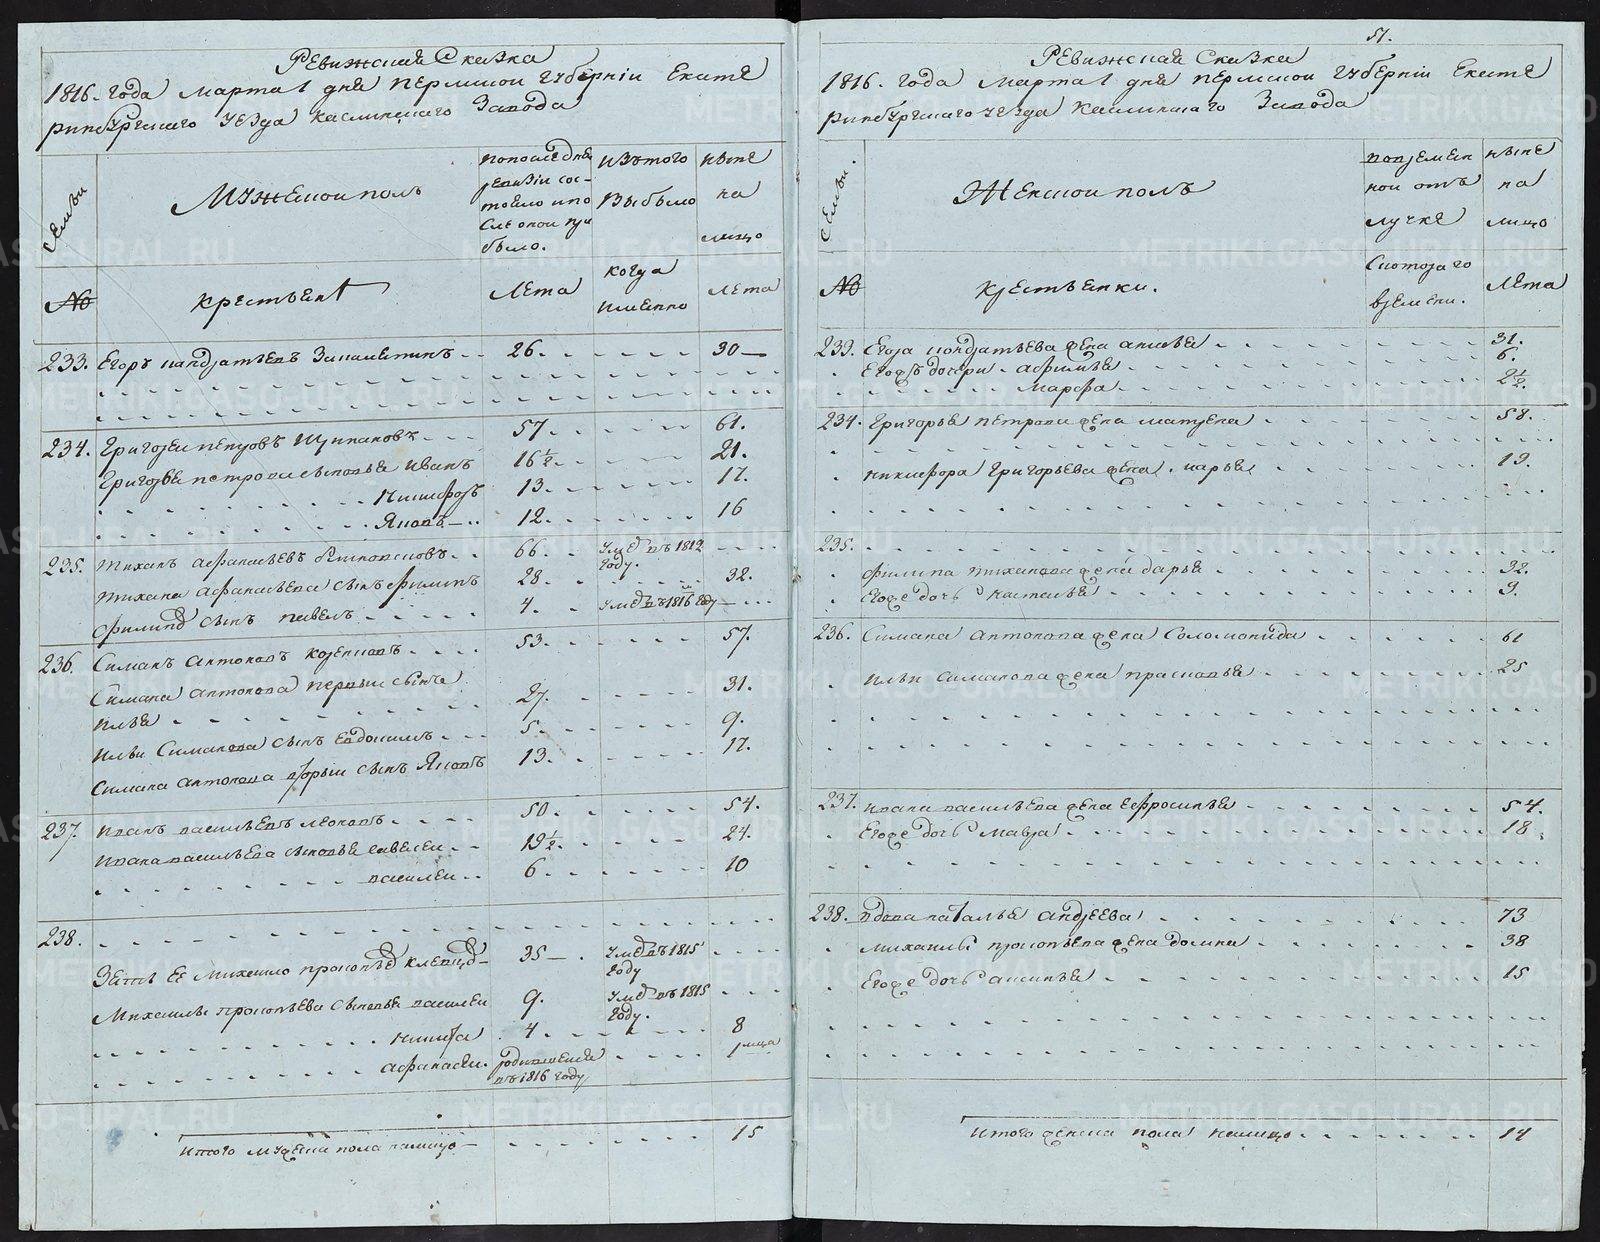 Ревижская Сказка
1816. года марта 1 дня пермской губернии Екате
ринбургского уезда каслинского Завода
Семьи
Мужескои полъ
По последней
ревизии сос-
тояло и по
сле оной при
было.
Изъ того
Выбыло
ныне
на
лицо
№
крестьянъ
Лета
когда
именно
лета
233. Егоръ кондратьевъ 26. 30
234. Григореи петровъ Щипановъ 57. 61.
Григорья петрова сыновья Иванъ 16 1/2. 21.
Никифоръ 13. 17.
Яковъ 12. 16
235. Тиханъ афанасьевъ 66. умеръ въ 1812
году.
Тихана афанасьева сынъ филипъ 28. 32.
филипа сынъ павелъ 4. умеръ въ 1816 году
236. Симанъ антоновъ 53. 57.
Симана антонова первыи сынъ
илья 27. 31.
ильи Симанова сынъ Евдокимъ 5. 9.
Симана антонова вторыи сынъ Яковъ 13. 17.
237. иванъ васильевъ леоновъ 50. 54.
ивана васильева сыновья савелеи 19 1/2. 24.
василеи 6. 10
238.
Зять ее михаило прокопьевъ 35 умеръ въ 1815
году
михаилы прокопьева сыновья василеи 9. умеръ въ 1815
году.
никита 4. 8
афанасеи. родившеися
въ 1816 году 1 меца
Итого мужеска пола налицо 15
51.
Ревижская Сказка
1816. года марта 1 дня пермской губернии Екате
ринбургского уезда каслинского Завода
Семьи.
Женскои полъ
во временнои отъ
лучке
ныне
на
лицо
№
крестьянки.
Скотораго
времени.
лета
233. Егора кондратьева жена 31.
Егоръ дочери афимья 6.
Марфа 2 1/2.
234. Григорья петрова жена матрена 58.
никифора Григорьева жена марья 19.
235.
филипа тиханова жена дарья 32.
Егоже дочь настасья 9.
236. Симана антонова жена Соломонида 61
ильи Симанова жена прасковья 25
237. ивана васильева жена Ефросинья 54.
Егоже дочь мавра 18.
238. вдова наталья андреева 73
михаилы прокопьева жена домна 38
Егоже дочь аксинья 15
Итого женска пола налицо 14
METRIKI.GASO-URAL.RU